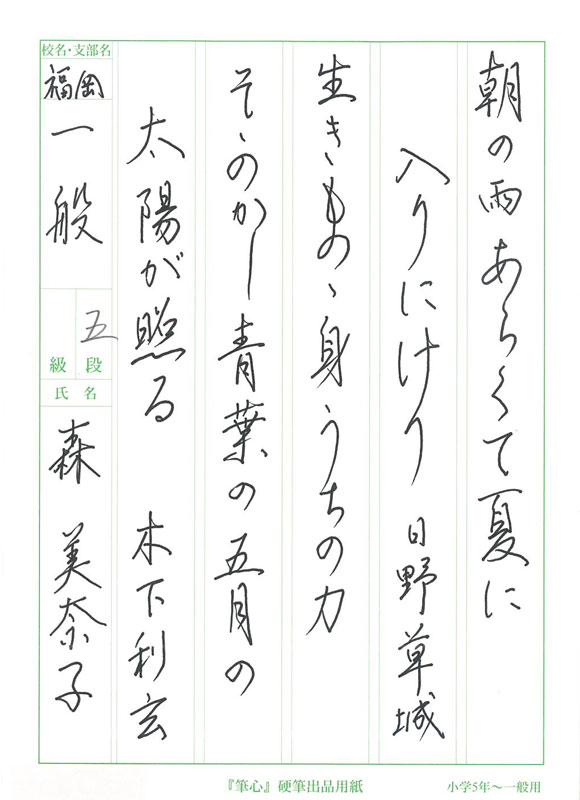 朝の雨あらくて夏に
入りにけり 日野草城
生きものゝ身うちの力
そゝのかし青葉の五月の
太陽が照る 木下利玄
校名・支部名
福岡
一般
五
級 段
氏名
森 美奈子
『筆心』硬筆出品用紙
小学5年～一般用